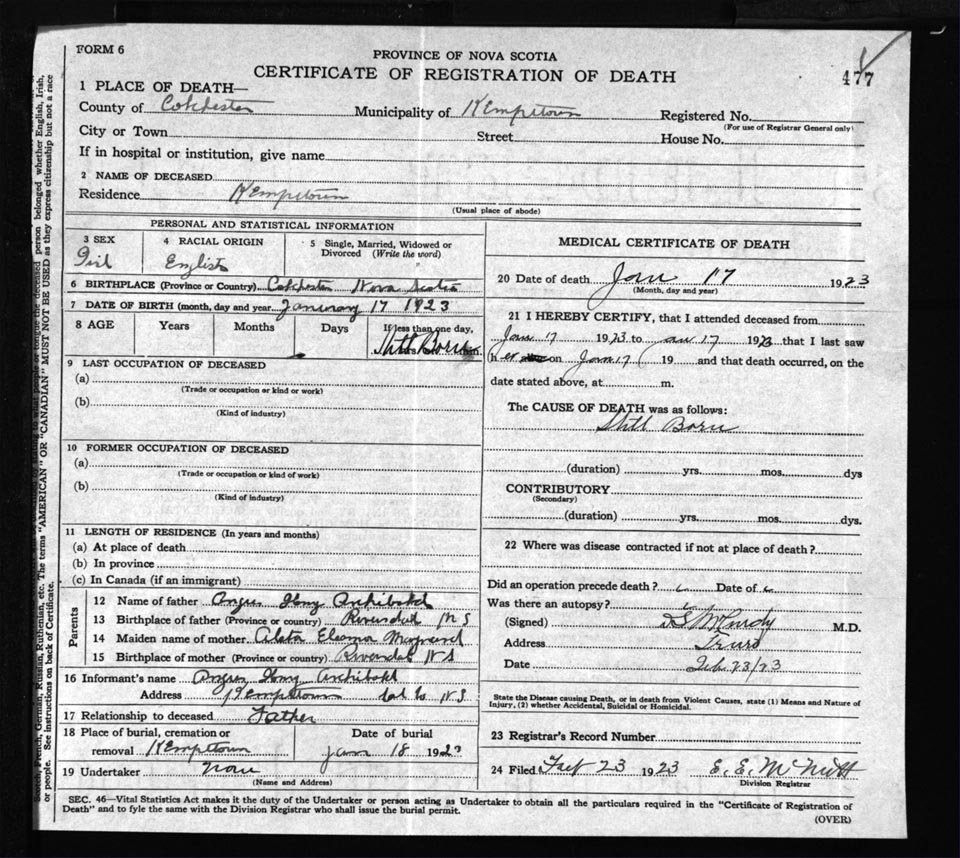 FORM 6
PROVINCE OF NOVA SCOTIA
CERTIFICATE OF REGISTRATION OF DEATH
477
1 PLACE OF DEATH—
County of Colchester Municipality of Kemptown Registered No.
(For use of Registrar General only)
City or Town Street House No.
If in hospital or institution, give name
2 NAME OF DECEASED
Residence Kemptown
(Usual place of abode)
PERSONAL AND STATISTICAL INFORMATION
3 SEX 4 RACIAL ORIGIN 5 Single, Married, Widowed or Divorced (Write the word)
Girl English
6 BIRTHPLACE (Province or Country) Colchester Nova Scotia
7 DATE OF BIRTH (month, day and year) January 17 1923
8 AGE Years Months Days If less than one day,
Still Born
9 LAST OCCUPATION OF DECEASED
(a)
(Trade or occupation or kind or work)
(b)
(Kind of industry)
10 FORMER OCCUPATION OF DECEASED
(a)
(Trade or occupation or kind of work)
(b)
(Kind of industry)
11 LENGTH OF RESIDENCE (In years and months)
(a) At place of death
(b) In province
(c) In Canada (if an immigrant)
Parents
12 Name of father Angus Archibald
13 Birthplace of father (Province or country) Riversdale N S
14 Maiden name of mother Eleanor
15 Birthplace of mother (Province or country) Riversdale N S
16 Informant's name Angus Archibald
Address Kemptown Col Co N S
17 Relationship to deceased Father
18 Place of burial, cremation or removal Kemptown
Date of burial Jan 18 1923
19 Undertaker None
(Name and Address)
MEDICAL CERTIFICATE OF DEATH
20 Date of death Jan 17 1923
(Month, day and year)
21 I HEREBY CERTIFY, that I attended deceased from
Jan 17 1923 to Jan 17 1923 that I last saw
h er on Jan 17 19 and that death occurred, on the
date stated above, at m.
The CAUSE OF DEATH was as follows:
Still Born
(duration) yrs. mos. dys
CONTRIBUTORY
(Secondary)
(duration) yrs. mos. dys.
22 Where was disease contracted if not at place of death?
Did an operation precede death? Date of
Was there an autopsy?
(Signed) McCurdy M.D.
Address Truro
Date Feb 23/23
State the Disease causing Death, or in death from Violent Causes, state (1) Means and Nature of
Injury, (2) whether Accidental, Suicidal or Homicidal.
23 Registrar's Record Number
24 Filed Feb 23 1923 E. E. McNutt
Division Registrar
SEC. 46—Vital Statistics Act makes it the duty of the Undertaker or person acting as Undertaker to obtain all the particulars required in the "Certificate of Registration of
Death" and to fyle the same with the Division Registrar who shall issue the burial permit.
(OVER)
French, German, Russian, Ruthenian, etc. The terms "AMERICAN" OR "CANADIAN" MUST NOT BE USED as they express citizenship but not a race
or people. See instructions on back of Certificate.